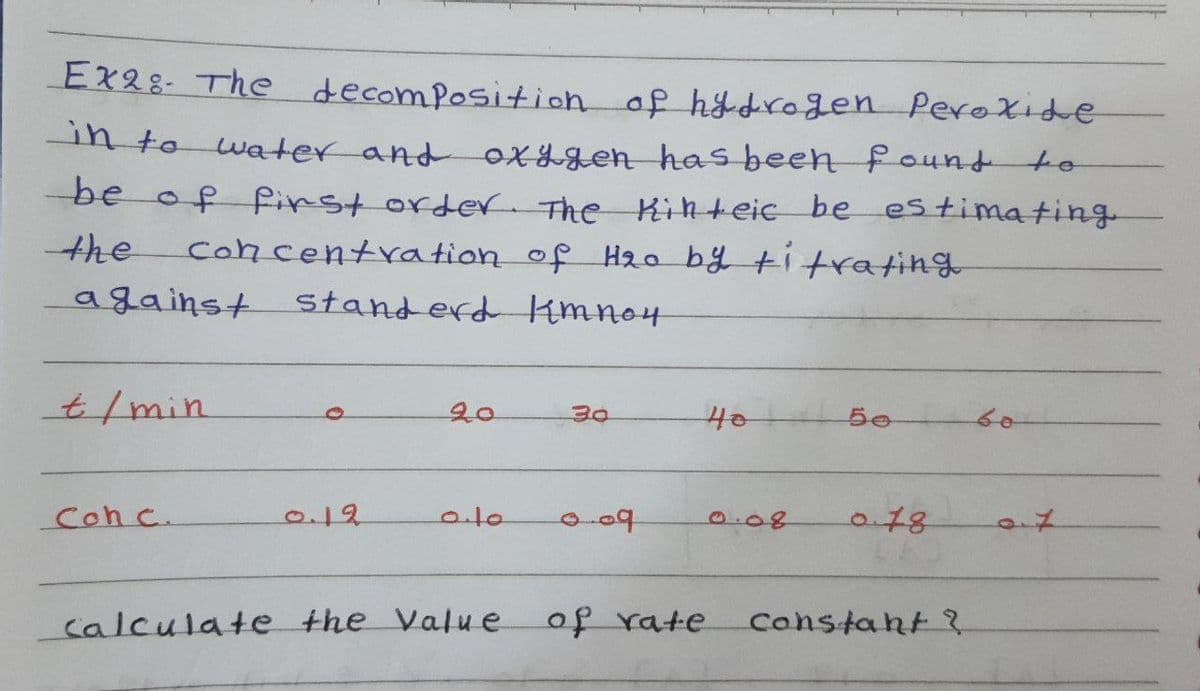 Ex28- The decomposition of hydrogen Peroxide
in to water and oxygen has been found to
be of first order. The Kinteic be estimating
the concentration of H2o by titrating
against standerd Kmno4
t/min 0 20 30 40 50 60
Conc. 0.12 0.10 0.09 0.08 0.78 0.7
calculate the Value of rate constant?